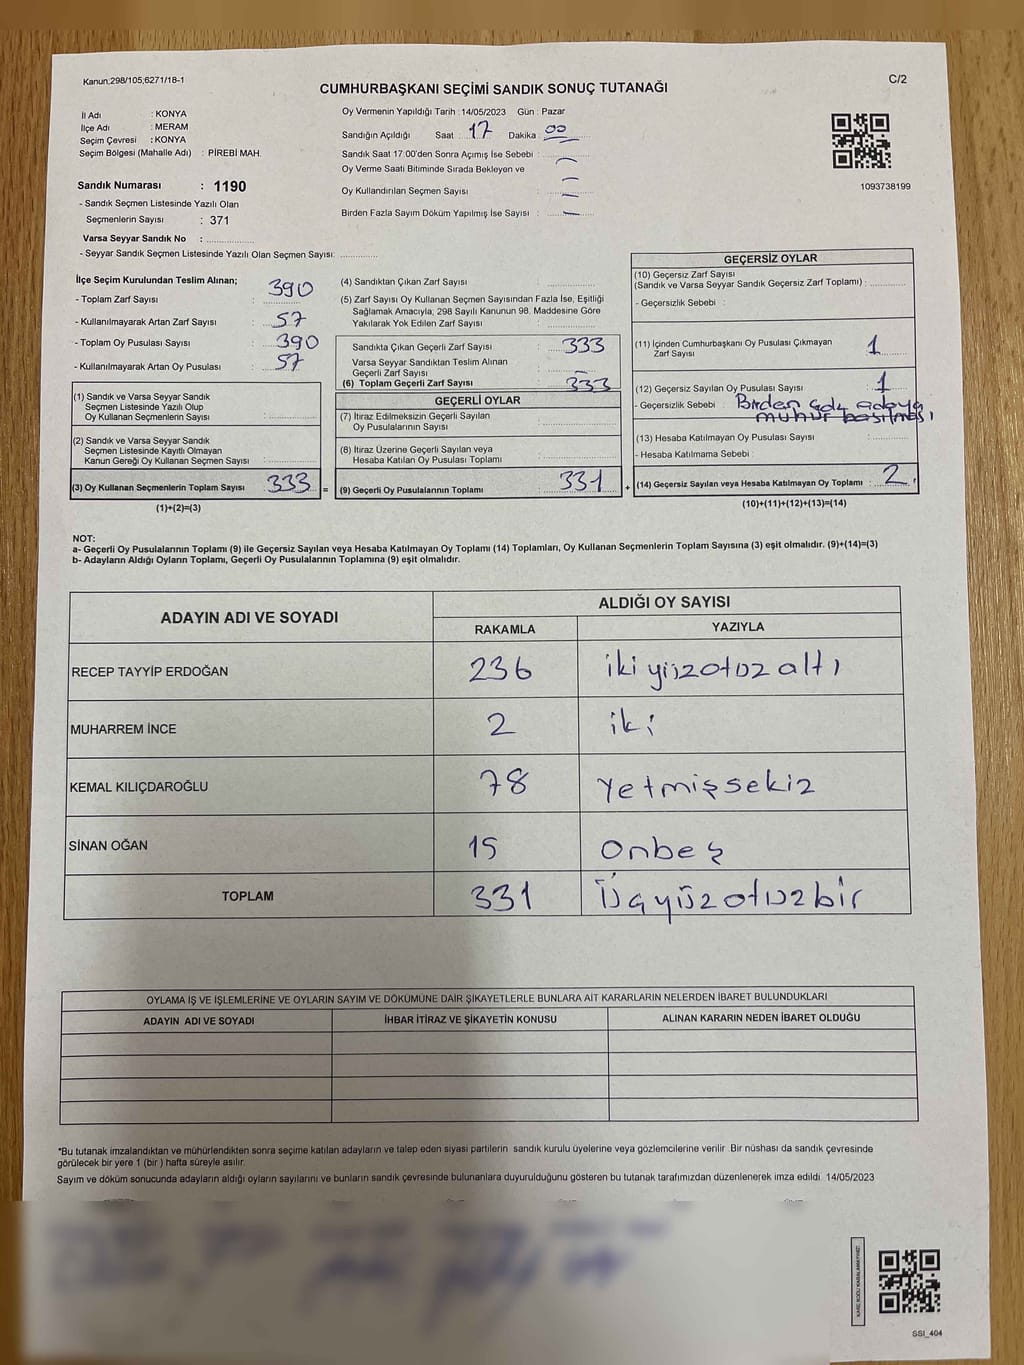 Kanun:298/105;6271/18-1
C/2
CUMHURBAŞKANI SEÇİMİ SANDIK SONUÇ TUTANAĞI
İl Adı : KONYA
İlçe Adı : MERAM
Seçim Çevresi : KONYA
Seçim Bölgesi (Mahalle Adı) : PİREBİ MAH.
Sandık Numarası : 1190
- Sandık Seçmen Listesinde Yazılı Olan
Seçmenlerin Sayısı : 371
Varsa Seyyar Sandık No :
- Seyyar Sandık Seçmen Listesinde Yazılı Olan Seçmen Sayısı:
Oy Vermenin Yapıldığı Tarih : 14/05/2023 Gün : Pazar
Sandığın Açıldığı Saat : 17 Dakika : 00
Sandık Saat 17:00'den Sonra Açımış İse Sebebi :
Oy Verme Saati Bitiminde Sırada Bekleyen ve
Oy Kullandırılan Seçmen Sayısı :
Birden Fazla Sayım Döküm Yapılmış İse Sayısı :
1093738199
İlçe Seçim Kurulundan Teslim Alınan;
- Toplam Zarf Sayısı : 390
- Kullanılmayarak Artan Zarf Sayısı : 57
- Toplam Oy Pusulası Sayısı : 390
- Kullanılmayarak Artan Oy Pusulası : 57
(1) Sandık ve Varsa Seyyar Sandık
Seçmen Listesinde Yazılı Olup
Oy Kullanan Seçmenlerin Sayısı :
(2) Sandık ve Varsa Seyyar Sandık
Seçmen Listesinde Kayıtlı Olmayan
Kanun Gereği Oy Kullanan Seçmen Sayısı :
(3) Oy Kullanan Seçmenlerin Toplam Sayısı 333 =
(1)+(2)=(3)
(4) Sandıktan Çıkan Zarf Sayısı :
(5) Zarf Sayısı Oy Kullanan Seçmen Sayısından Fazla İse, Eşitliği
Sağlamak Amacıyla; 298 Sayılı Kanunun 98. Maddesine Göre
Yakılarak Yok Edilen Zarf Sayısı :
Sandıkta Çıkan Geçerli Zarf Sayısı : 333
Varsa Seyyar Sandıktan Teslim Alınan
Geçerli Zarf Sayısı :
(6) Toplam Geçerli Zarf Sayısı : 333
GEÇERLİ OYLAR
(7) İtiraz Edilmeksizin Geçerli Sayılan
Oy Pusulalarının Sayısı :
(8) İtiraz Üzerine Geçerli Sayılan veya
Hesaba Katılan Oy Pusulası Toplamı :
(9) Geçerli Oy Pusulalarının Toplamı : 331 +
GEÇERSİZ OYLAR
(10) Geçersiz Zarf Sayısı
(Sandık ve Varsa Seyyar Sandık Geçersiz Zarf Toplamı) :
- Geçersizlik Sebebi :
(11) İçinden Cumhurbaşkanı Oy Pusulası Çıkmayan
Zarf Sayısı : 1
(12) Geçersiz Sayılan Oy Pusulası Sayısı : 1
- Geçersizlik Sebebi : Birden çok adaya
mühür basılması
(13) Hesaba Katılmayan Oy Pusulası Sayısı :
- Hesaba Katılmama Sebebi :
(14) Geçersiz Sayılan veya Hesaba Katılmayan Oy Toplamı : 2
(10)+(11)+(12)+(13)=(14)
NOT:
a- Geçerli Oy Pusulalarının Toplamı (9) ile Geçersiz Sayılan veya Hesaba Katılmayan Oy Toplamı (14) Toplamları, Oy Kullanan Seçmenlerin Toplam Sayısına (3) eşit olmalıdır. (9)+(14)=(3)
b- Adayların Aldığı Oyların Toplamı, Geçerli Oy Pusulalarının Toplamına (9) eşit olmalıdır.
ADAYIN ADI VE SOYADI
ALDIĞI OY SAYISI
RAKAMLA YAZIYLA
RECEP TAYYİP ERDOĞAN 236 ikiyüzotuzaltı
MUHARREM İNCE 2 iki
KEMAL KILIÇDAROĞLU 78 Yetmişsekiz
SİNAN OĞAN 15 Onbeş
TOPLAM 331 Üçyüzotuzbir
OYLAMA İŞ VE İŞLEMLERİNE VE OYLARIN SAYIM VE DÖKÜMÜNE DAİR ŞİKAYETLERLE BUNLARA AİT KARARLARIN NELERDEN İBARET BULUNDUKLARI
ADAYIN ADI VE SOYADI İHBAR İTİRAZ VE ŞİKAYETİN KONUSU ALINAN KARARIN NEDEN İBARET OLDUĞU
*Bu tutanak imzalandıktan ve mühürlendikten sonra seçime katılan adayların ve talep eden siyasi partilerin sandık kurulu üyelerine veya gözlemcilerine verilir. Bir nüshası da sandık çevresinde
görülecek bir yere 1 (bir ) hafta süreyle asılır.
Sayım ve döküm sonucunda adayların aldığı oyların sayılarını ve bunların sandık çevresinde bulunanlara duyurulduğunu gösteren bu tutanak tarafımızdan düzenlenerek imza edildi. 14/05/2023
KARE KODU KARALAMAYINIZ!
SSI_404